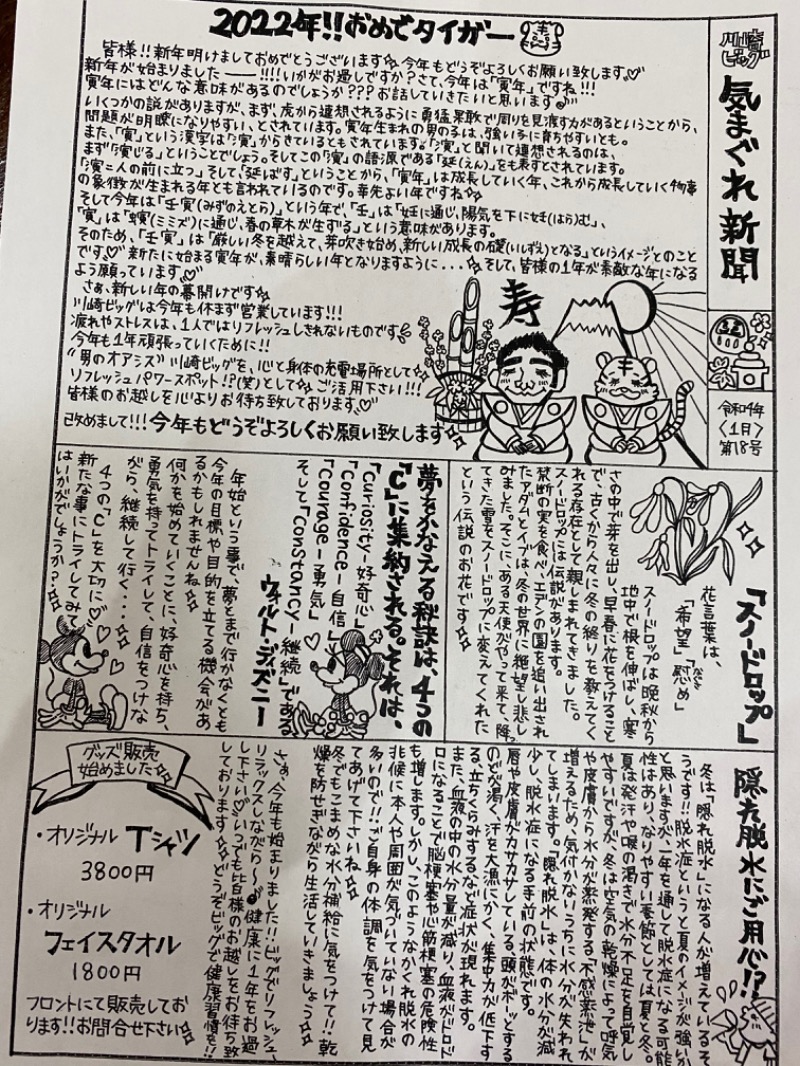 2022年!!おめでタイガー
川崎ビッグ
気まぐれ新聞
令和4年
〈1月〉
第18号
皆様!!新年明けましておめでとうございます✨今年もどうぞよろしくお願い致します♡
新年が始まりましたー!!!!いかがお過しですか?さて、今年は「寅年」ですね!!!
寅年にはどんな意味があるのでしょうか???お話していきたいと思います♪
いくつかの説がありますが、まず、虎から連想されるように勇猛果敢で周りを見渡す力があるということから、
問題が明瞭になりやすい、とされています。寅年生まれの男の子は、強い子に育ちやすいとも。
また、「寅」という漢字は「演」からきているともされています。「演」と聞いて連想されるのは、
まず「演じる」ということでしょう。そしてこの「演」の語源である「延(えん)」をも表すとされています。
「演=人の前に立つ」そして、「延ばす」ということから、「寅年」は成長していく年、これから成長していく物事
の象徴が生まれる年とも言われているのです。幸先よい年ですね✨
そして今年は「壬寅(みずのえとら)」という年で、「壬」は「妊に通じ、陽気を下に妊(はら)む」、
「寅」は「螾(ミミズ)に通じ、春の草木が生ずる」という意味があります。
そのため、「壬寅」は「厳しい冬を越えて、芽吹き始め、新しい成長の礎(いしずえ)となる」というイメージとのこと
です♡新たに始まる寅年が、素晴らしい年となりますように...✨そして、皆様の1年が素敵な年になる
よう願っています♡
さぁ、新しい年の幕開けです✨
川崎ビッグは今年も休まず営業しています!!!
疲れやストレスは、1人ではリフレッシュしきれないものです
今年も1年頑張っていくために!!
"男のオアシス"川崎ビッグを、心と身体の充電場所として✨
リフレッシュパワースポット!?(笑)として✨ご活用下さい!!!
皆様のお越しを心よりお待ち致しております♡
改めまして!!!今年もどうぞよろしくお願い致します✨
寿
「スノードロップ」
花言葉は、
「希望」「慰め」
なぐさ
スノードロップは晩秋から
地中で根を伸ばし、寒
さの中で芽を出し、早春に花をつけること
で、古くから人々に冬の終りを教えてく
れる存在として親しまれてきました。
スノードロップには伝説があります。
禁断の実を食べ、エデンの園を追い出され
たアダムとイブは、冬の世界に絶望し悲し
みました。そこに、ある天使がやって来て、降っ
てきた雪をスノードロップに変えてくれた
という伝説のお花です✨
夢をかなえる秘訣は、4つの
「C」に集約される。それは、
「Curiosity-好奇心」
「Confidence-自信」
「Courage-勇気」
そして「Constancy-継続」である
ウォルト・ディズニー
年始という事で、夢とまで行かなくとも
今年の目標や目的を立てる機会があ
るかもしれませんね✨
何かを始めていくことに、好奇心を持ち、
勇気を持ってトライして、自信をつけな
がら、継続して行く...✨
4つの「C」を大切に♡
新たな事にトライしてみて
はいかがでしょうか?✨
隠れ脱水にご用心!?
冬は「隠れ脱水」になる人が増えているそ
うです!!脱水症というと夏のイメージが強いか
と思いますが、一年を通して脱水症になる可能
性はあり、なりやすい季節としては夏と冬。
夏は発汗や喉の渇きで水分不足を自覚し
やすいですが、冬は空気の乾燥によって呼気
や皮膚から水分が蒸発する「不感蒸泄」が
増えるため、気付かないうちに水分が失われ
てしまいます。「隠れ脱水」は、体の水分が減
少し、脱水症になる手前の状態です。
唇や皮膚がカサカサしている、頭がボーッとする
のどが渇く、汗を大漁にかく、集中力が低下す
る、立ちくらみするなど症状が現れます。
また、血液の中の水分量が減り、血液がドロド
ロになることで脳梗塞や心筋梗塞の危険性
も増します。しかし、このようなかくれ脱水の
兆候に本人や周囲が気づいていない場合が
多いので!!ご自身の体調を気をつけて見
てあげて下さいね✨
冬でもこまめな水分補給に気をつけて!!乾
燥を防せぎながら生活していきましょう✨
さぁ、今年も始まりました!!ビッグでリフレッシュ
リラックスしながら〜♪健康に1年をお過
し下さい♡いつでも皆様のお越しをお待ち致
しております✨どうぞビッグで健康習慣を!!
グッズ販売
始めました✨
・オリジナルTシャツ
3800円
・オリジナル
フェイスタオル
1800円
フロントにて販売してお
ります!!お問合せ下さい✨